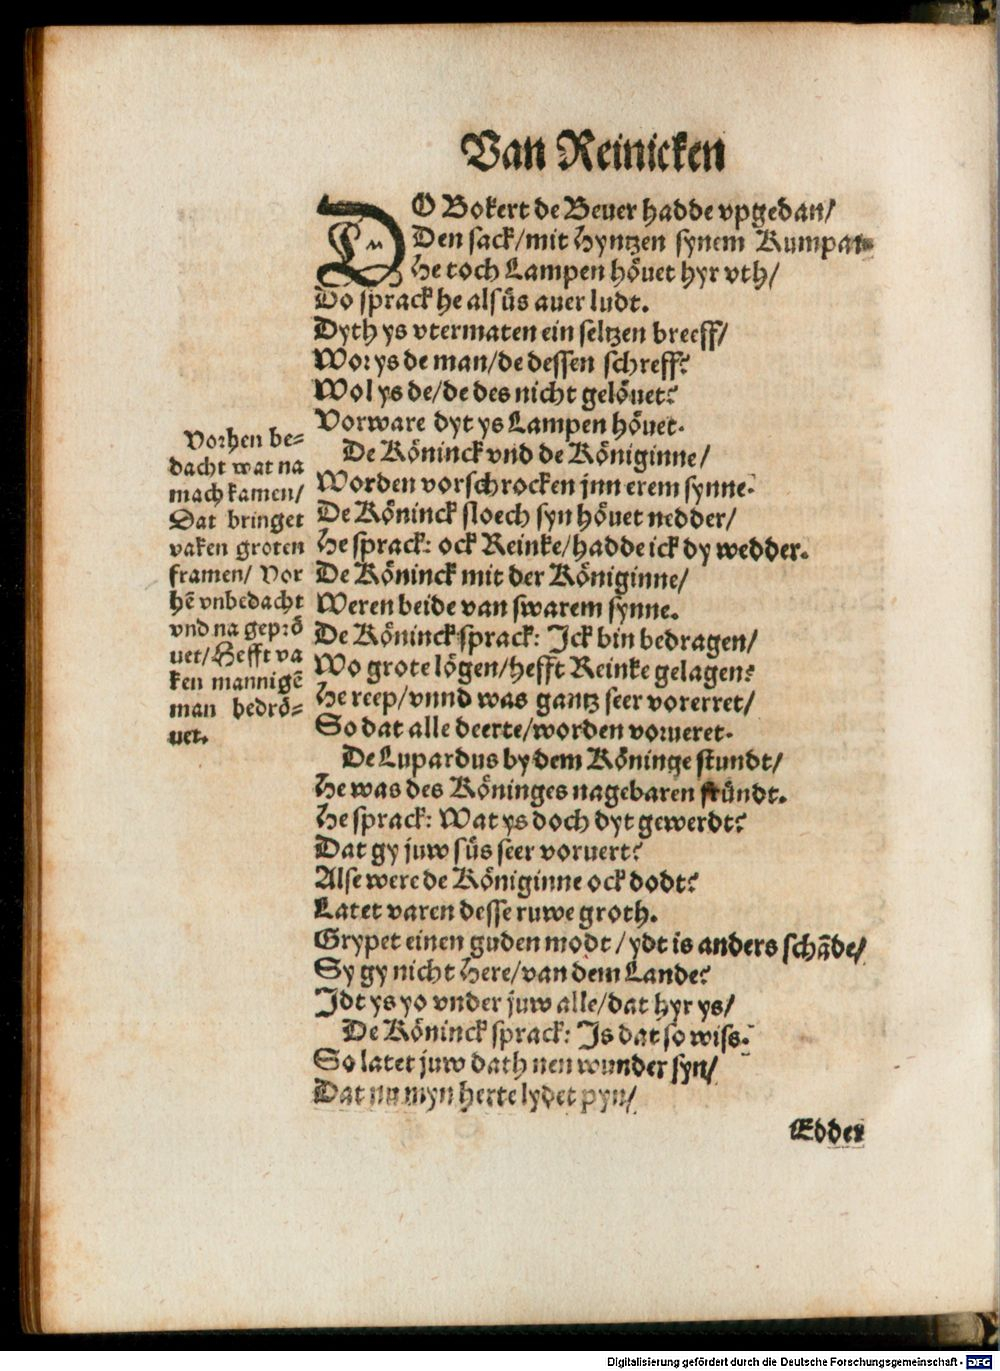 Van Reinicken
DO Bokert de Beuer hadde vpgedan/
Den sack/mit Hyntzen synem Kumpan
He toch Lampen höuet hyr vth/
Do sprack he alsüs auer ludt.
Dyth ys vtermaten ein seltzen breeff/
Wor ys de man/de dessen schreff?
Wol ys de/de des nicht gelöuet?
Vorware dyt ys Lampen höuet.
De Köninck vnd de Königinne/
Worden vorschrocken jnn erem synne.
De Köninck sloech syn höuet nedder/
He sprack: ock Reinke/hadde ick dy wedder.
De Köninck mit der Königinne/
Weren beide van swarem synne.
De Köninck sprack: Ick bin bedragen/
Wo grote lögen/hefft Reinke gelagen?
He reep/vnnd was gantz seer vorerret/
So dat alle deerte/worden vorueret.
De Lupardus by dem Köninge stundt/
He was des Köninges nagebaren fründt.
He sprack: Wat ys doch dyt gewerdt?
Dat gy juw süs seer voruert?
Alse were de Königinne ock dodt?
Latet varen desse ruwe groth.
Grypet einen guden modt/ydt is anders schāde/
Sy gy nicht Here/van dem Lande?
Idt ys yo vnder juw alle/dat hyr ys/
De Köninck sprack: Is dat so wiss.
So latet juw dath nen wunder syn/
Dat nu myn herte lydet pyn/
Edder
Vorhen be=
dacht wat na
mach kamen/
Dat bringet
vaken groten
framen/ Vor
hē vnbedacht
vnd na geprö
uet/Hefft va
ken mannigē
man bedrö=
uet.
Digitalisierung gefördert durch die Deutsche Forschungsgemeinschaft - DFG